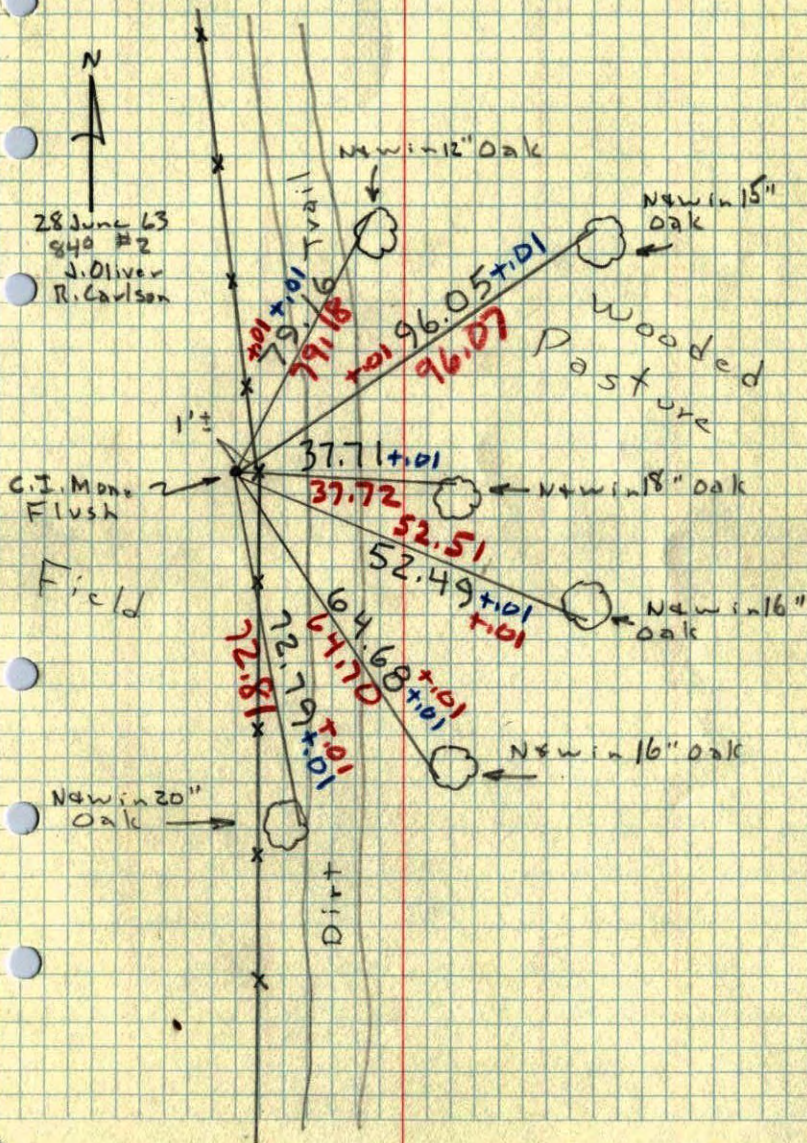 N
28 June 63
84° #2
J. Oliver
R. Carlson
N&W in 12" Oak
N&W in 15"
Oak
Trail
+.01
79.16
+.01
79.18
96.05 +.01
+.01
96.07
Wooded
Pasture
1'±
C.I. Mon.
Flush
37.71 +.01
37.72
N&W in 18" Oak
52.51
52.49 +.01
+.01
N&W in 16"
Oak
Field
64.68 +.01
+.01
64.70
72.79 +.01
+.01
72.81
N&W in 16" Oak
N&W in 20"
Oak
Dirt